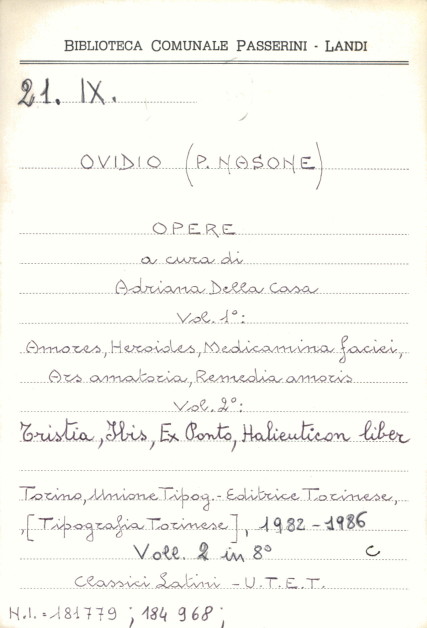 BIBLIOTECA COMUNALE PASSERINI - LANDI
21. IX.
OVIDIO (P. NASONE)
OPERE
a cura di
Adriana Della Casa
Vol. 1º:
Amores, Heroides, Medicamina faciei,
Ars amatoria, Remedia amoris
Vol. 2º:
Tristia, Ibis, Ex Ponto, Halieuticon liber
Torino, Unione Tipog.- Editrice Torinese,
,[Tipografia Torinese], 1982-1986
Voll. 2 in 8º C
Classici Latini - U.T.E.T.
N.I. = 181779 ; 184 968 ;